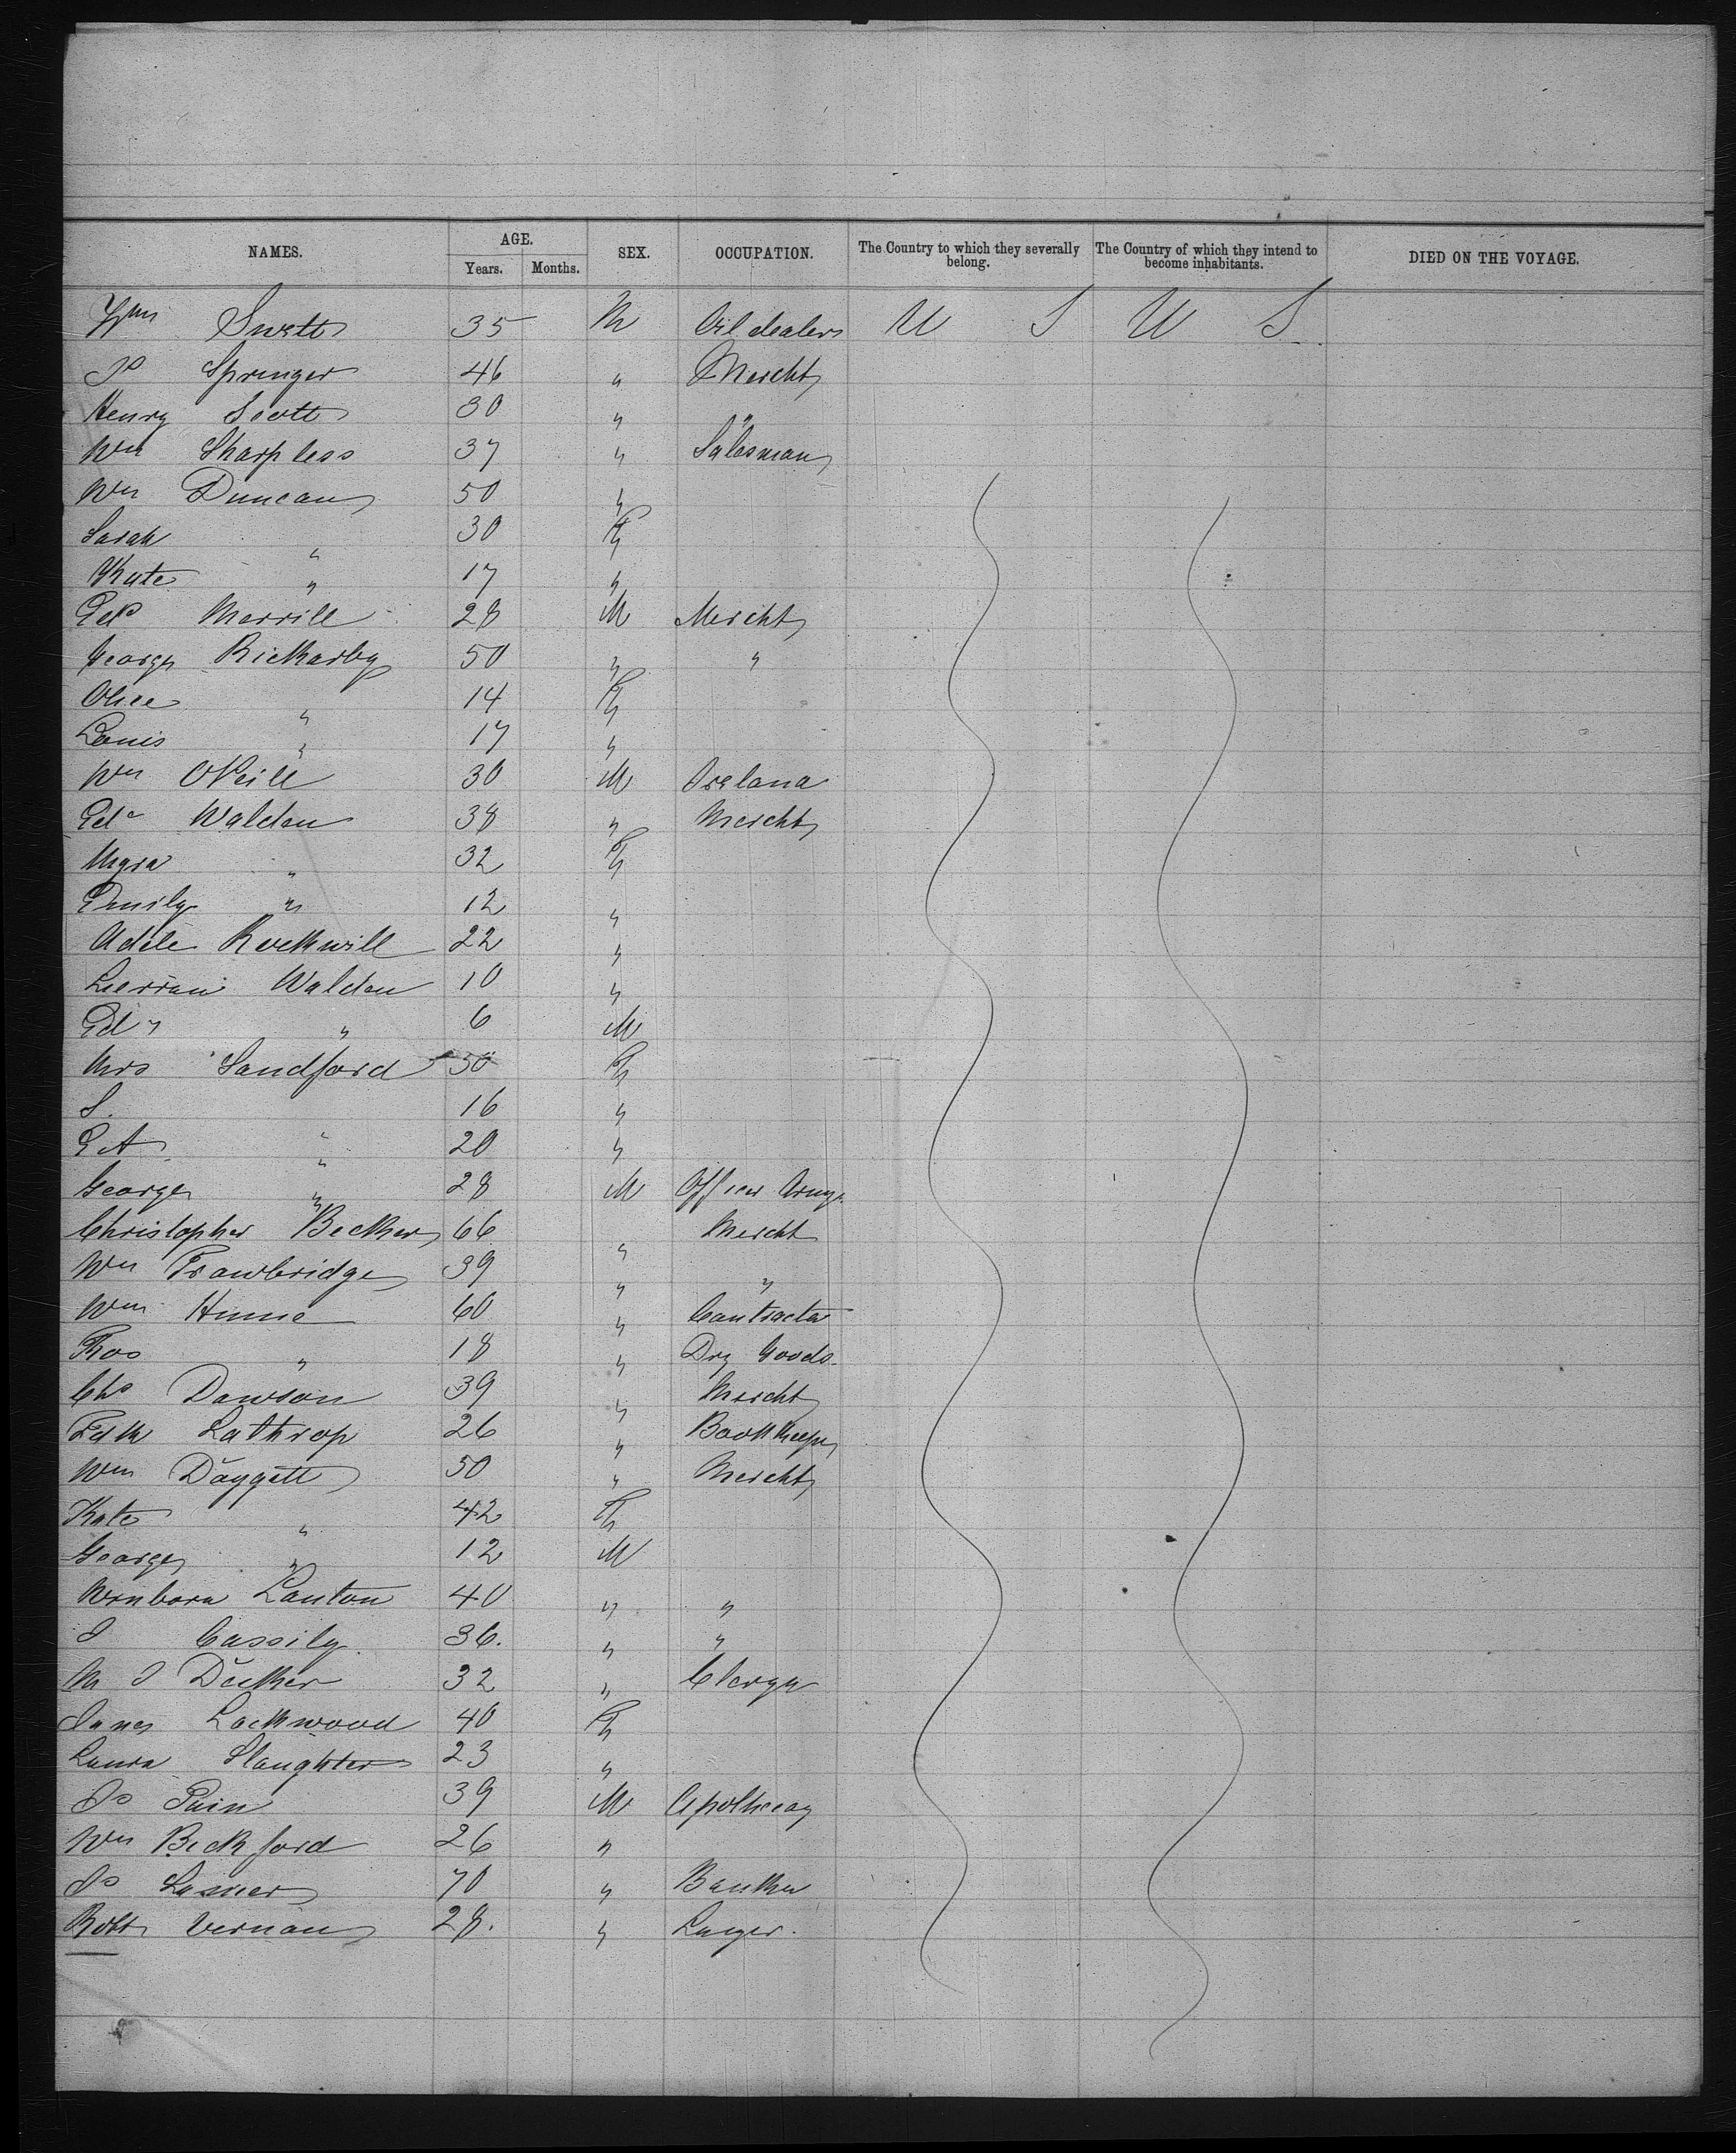 NAMES. AGE. SEX. OCCUPATION. The Country to which they severally belong. The Country of which they intend to become inhabitants. DIED ON THE VOYAGE.
Years. Months.
Wm Swett 35 M Oil dealer U S U S
Jo Springer 46 " Mercht
Henry Scott 30 " "
Wm Sharpless 37 " Salesman
Wm Duncan 50 "
Sarah " 30 F
Kate " 17 "
Ed Merrill 28 M Mercht
George Rickarby 50 " "
Alice " 14 F
Louis " 17 "
Wm ONeill 30 M
Ed Walden 38 " Mercht
Myra " 32 F
Emily " 12 "
Adele Rockwill 22 "
Walden 10 "
Ed " 6 M
Mrs Sandford 50 F
S. " 16 "
E A " 20 "
George " 28 M Officer Army
Christopher Becker 66 " Mercht
Wm Trowbridge 39 " "
Wm Hume 60 " Contractor
Thos " 18 " Dry Goods
Chs Dawson 39 " Mercht
Fdk Lathrop 26 " Bookkeeper
Wm Daggett 50 " Mercht
Kate " 42 F
George " 12 M
Lanton 40 " "
J Cassily 36. " "
M J Decker 32 " Clergy
Lockwood 40 F
Laura Slaughter 23 "
Jo Pain 39 M
Wm Beckford 26 "
Jo 70 " Banker
Robt Vernan 28. "